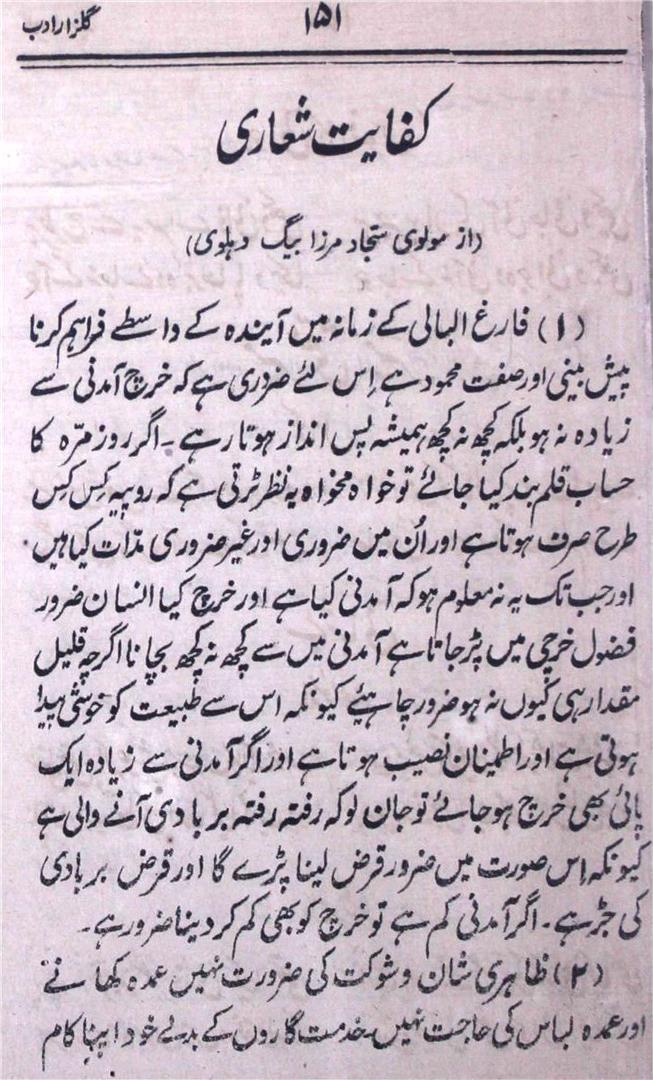 گلزار ادب
۱۵۱
کفایت شعاری
(از مولوی سجاد مرزا بیگ دہلوی)
(۱) فارغ البالی کے زمانہ میں آیندہ کے واسطے فراہم کرنا
پیش بینی اور صفت محمود ہے اِس لئے ضروری ہے کہ خرچ آمدنی سے
زیادہ نہ ہو بلکہ کچھ نہ کچھ ہمیشہ پس انداز ہوتا رہے ۔ اگر روز مرّہ کا
حساب قلم بند کیا جائے تو خواہ مخواہ یہ نظر پڑتی ہے کہ روپیہ کِس کِس
طرح صرف ہوتا ہے اور اُن میں ضروری اور غیر ضروری مدّات کیا ہیں ۔
اور جب تک یہ نہ معلوم ہو کہ آمدنی کیا ہے اور خرچ کیا انسان ضرور
فضول خرچی میں پڑ جاتا ہے آمدنی میں سے کچھ نہ کچھ بچانا اگرچہ قلیل
مقدار ہی کیوں نہ ہو ضرور چاہئیے کیونکہ اس سے طبیعت کو خوشی پیدا
ہوتی ہے اور اطمینان نصیب ہوتا ہے اور اگر آمدنی سے زیادہ ایک
پائی بھی خرچ ہو جائے تو جان لو کہ رفتہ رفتہ بربادی آنے والی ہے
کیونکہ اِس صورت میں ضرور قرض لینا پڑے گا اور قرض بربادی
کی جڑ ہے ۔ اگر آمدنی کم ہے تو خرچ کو بھی کم کر دینا ضرور ہے ۔
(۲) ظاہری شان و شوکت کی ضرورت نہیں عمدہ کھانے
اور عمدہ لباس کی حاجت نہیں۔ خدمت گاروں کے بدلے خود اپنا کام